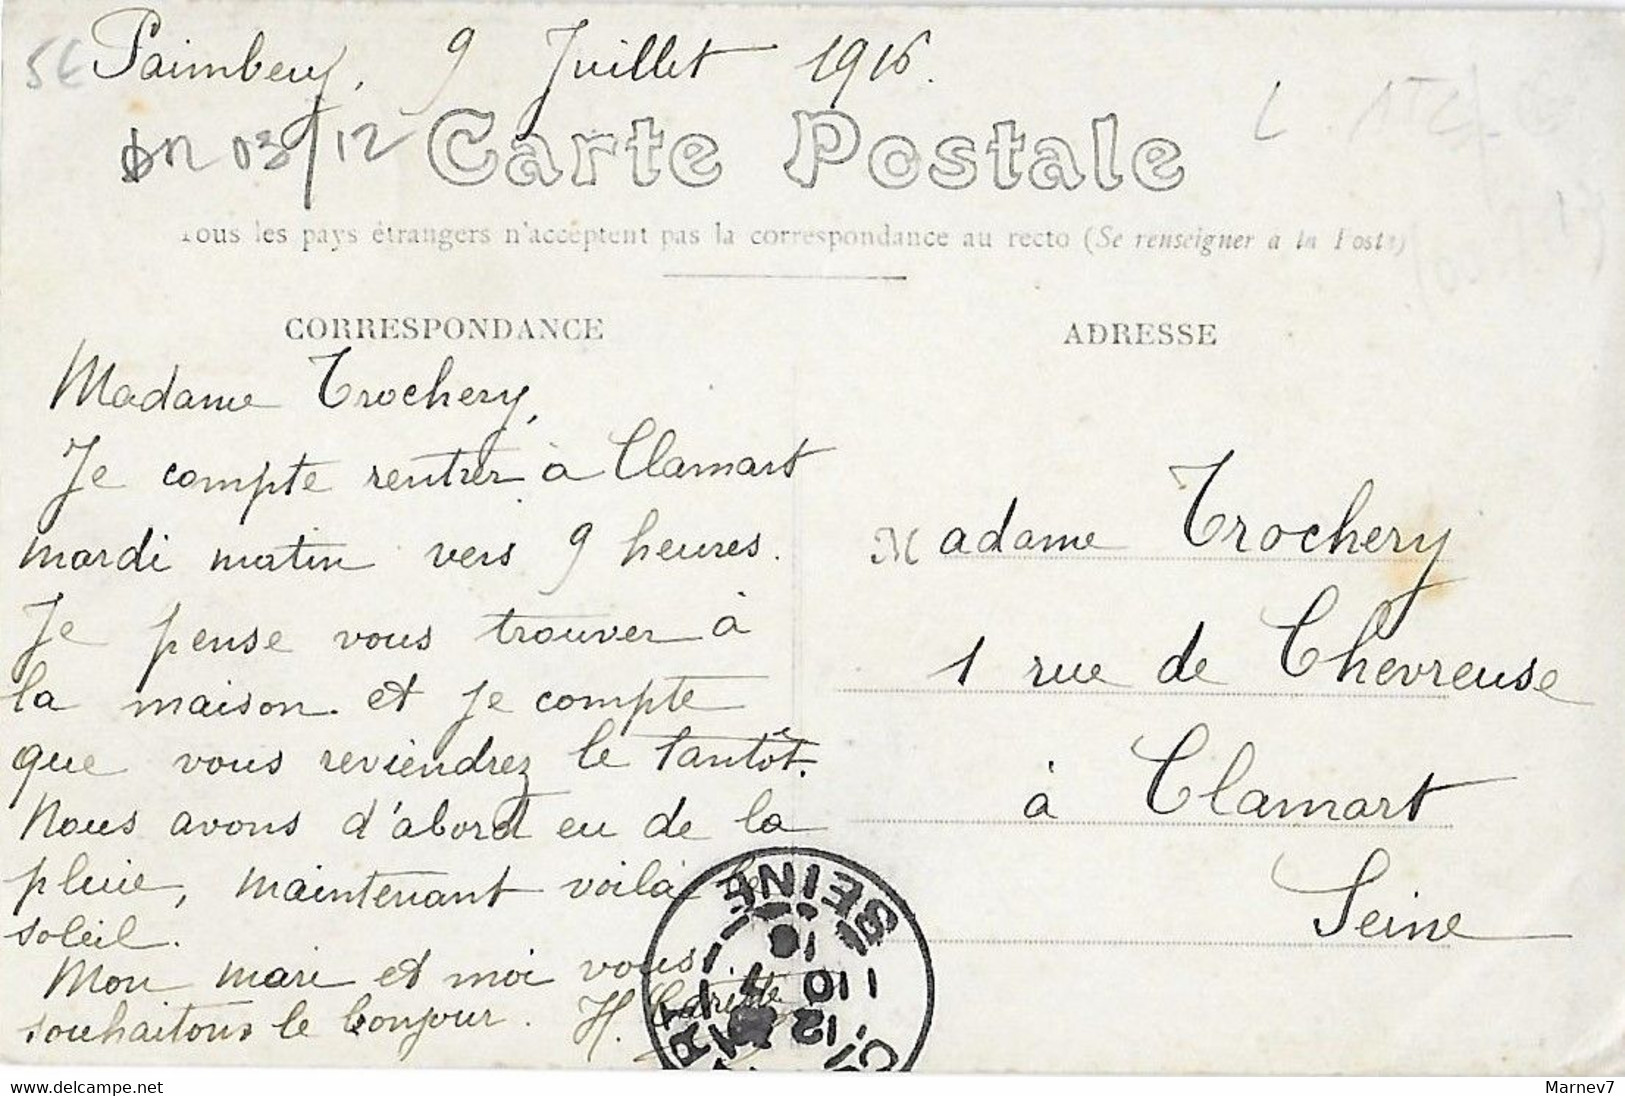 Paimbeuf, 9 Juillet 1916.
03/12
Carte Postale
Tous les pays étrangers n'acceptent pas la correspondance au recto (Se renseigner à la Poste)
CORRESPONDANCE
Madame Trochery,
Je compte rentrer à Clamart
mardi matin vers 9 heures.
Je pense vous trouver à
la maison et je compte
que vous reviendrez le tantôt.
Nous avons d'abord eu de la
pluie, maintenant voilà le
soleil.
Mon mari et moi vous
souhaitons le bonjour. H.
ADRESSE
Madame Trochery
1 rue de Chevreuse
à Clamart
Seine
SEINE
delcampe.net
Marnev7